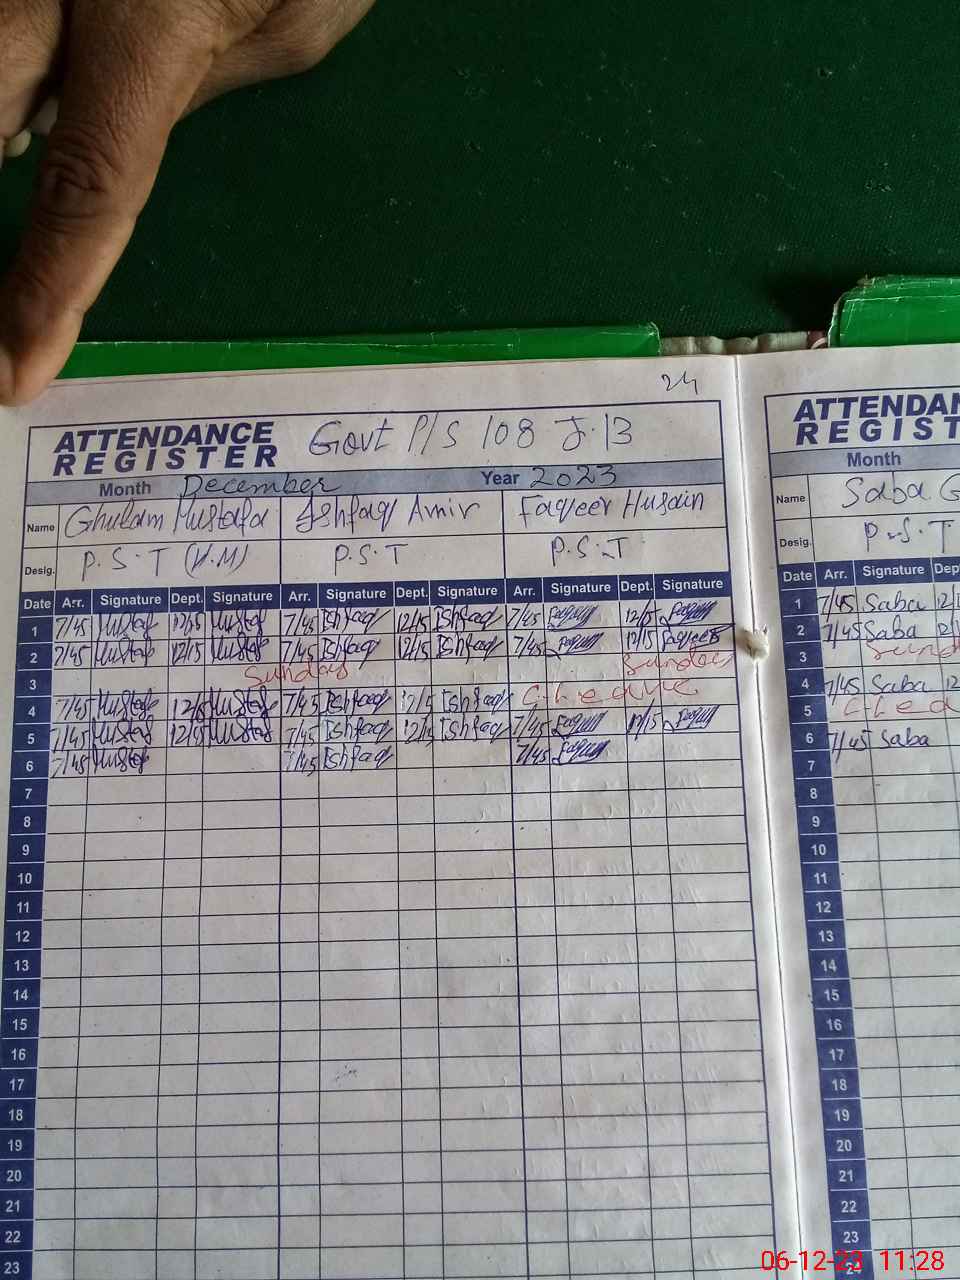 24
ATTENDANCE
REGISTER
Govt P/S 108 J.B
Month December Year 2023
Name Ghulam Mustafa Ishfaq Amir Faqeer Husain
Desig. P.S.T (H.M) P.S.T P.S.T
Date Arr. Signature Dept. Signature Arr. Signature Dept. Signature Arr. Signature Dept. Signature
1 7/45 Mustaf 12/15 Mustaf 7/45 Ishfaq 12/15 Ishfaq 7/45 Faqeer 12/15 Faqeer
2 7/45 Mustaf 12/15 Mustaf 7/45 Ishfaq 12/15 Ishfaq 7/45 Faqeer 12/15 Faqeer
3 Sunday Sunday
4 7/45 Mustaf 12/15 Mustaf 7/45 Ishfaq 12/15 Ishfaq
5 7/45 Mustaf 12/15 Mustaf 7/45 Ishfaq 12/15 Ishfaq 7/45 Faqeer 12/15 Faqeer
6 7/45 Mustaf 7/45 Ishfaq 7/45 Faqeer
7
8
9
10
11
12
13
14
15
16
17
18
19
20
21
22
23
ATTENDAN
REGIST
Month
Name Saba G
Desig. P.S.T
Date Arr. Signature Dept
1 7/45 Saba 12/1
2 7/45 Saba 12/1
3 Sund
4 7/45 Saba 12
5
6 7/45 Saba
7
8
9
10
11
12
13
14
15
16
17
18
19
20
21
22
23
24
06-12-23 11:28